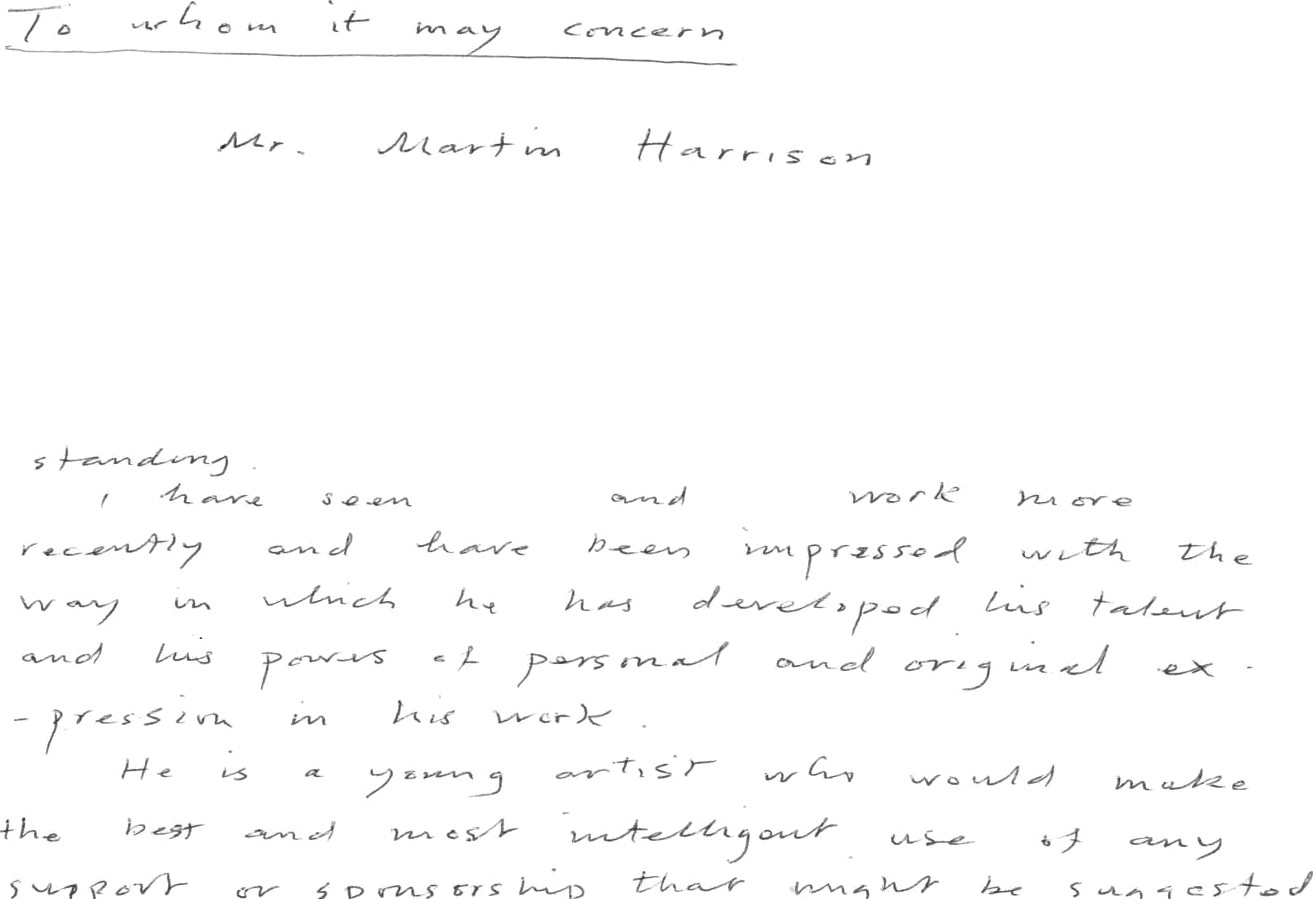 To whom it may concern
Mr. Martin Harrison
standing.
I have seen and work more
recently and have been impressed with the
way in which he has developed his talent
and his powers of personal and original ex-
-pression in his work.
He is a young artist who would make
the best and most intelligent use of any
support or sponsorship that might be suggested